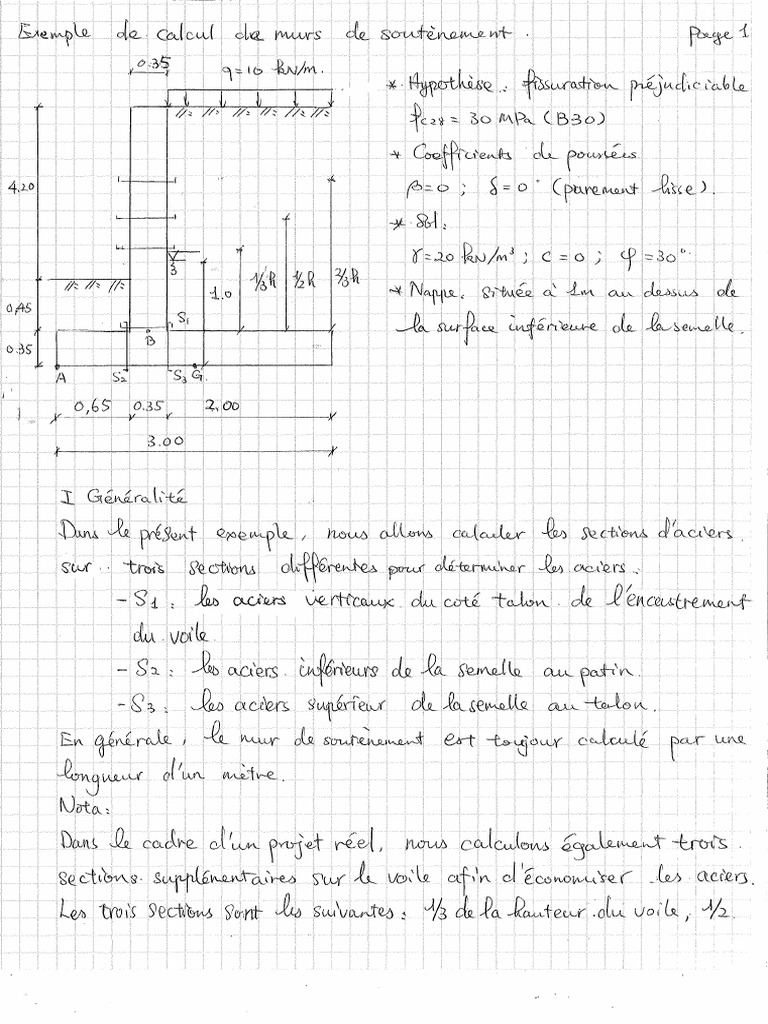 Exemple de calcul de murs de soutènement. Page 1
0.35
q=10 kN/m.
* Hypothèse: fissuration préjudiciable
fc28 = 30 MPa (B30)
* Coefficients de poussées
β=0 ; δ=0° (parement lisse).
* Sol:
γ=20 kN/m³ ; c=0 ; φ=30°
* Nappe: située à 1m au dessus de
la surface inférieure de la semelle.
4.20
0,45
0.35
3
1.0
1/3h
1/2h
2/3h
S1
B
A
S2
S3
G
0,65
0.35
2.00
3.00
I Généralité
Dans le présent exemple, nous allons calculer les sections d'aciers
sur trois sections différentes pour déterminer les aciers:
- S1: les aciers verticaux du coté talon de l'encastrement
du voile
- S2: les aciers inférieurs de la semelle au patin.
- S3: les aciers supérieur de la semelle au talon.
En générale, le mur de soutènement est toujour calculé par une
longueur d'un mètre.
Nota:
Dans le cadre d'un projet réel, nous calculons également trois
sections supplémentaires sur le voile afin d'économiser les aciers.
Les trois sections sont les suivantes: 1/3 de la hauteur du voile, 1/2